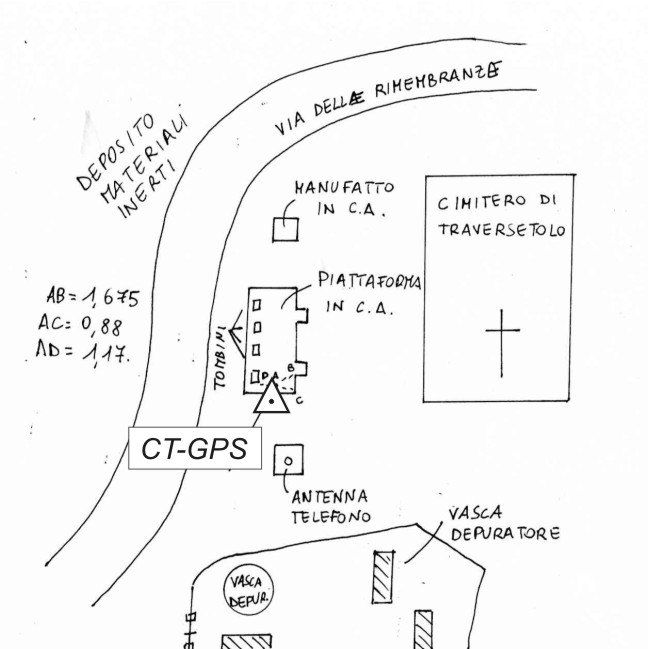 VIA DELLE RIMEMBRANZE
DEPOSITO
MATERIALI
INERTI
MANUFATTO
IN C.A.
CIMITERO DI
TRAVERSETOLO
PIATTAFORMA
IN C.A.
AB= 1,675
AC= 0,88
AD= 1,17.
TOMBINI
D A B
C
CT-GPS
ANTENNA
TELEFONO
VASCA
DEPURATORE
VASCA
DEPUR.